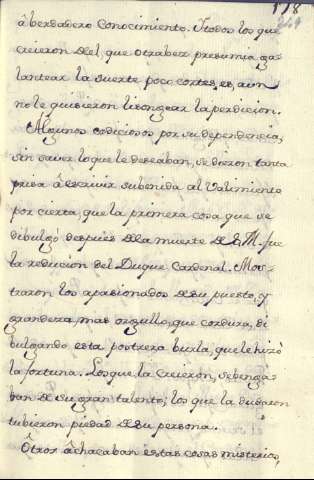 118
249
â berdadero conocimiento. Ttodos los que
creieron del, que otrabez presumia ga-
lantear la suerte poco cortes, es, aun
no le quisieron lisongear la perdicion.
Algunos codiciosos por su dependencia,
sin saver lo que le deseaban, se dieron tanta
prisa â escriuir subenida al Valimiento
por cierta, que la primera cosa que se
dibulgó despues dela muerte de S. M. fue
la reducion del Duque Cardenal. Mos-
traron los apasionados de su puesto, y
grandeza mas orgullo, que cordura, di
bulgando esta postrera burla, que le hizo
la fortuna. Los que la creieron, sebenga-
ban de su gran talento; los que la dudaron
tubieron piedad de su persona.
Ôtros achacaban estas cosas misterios,